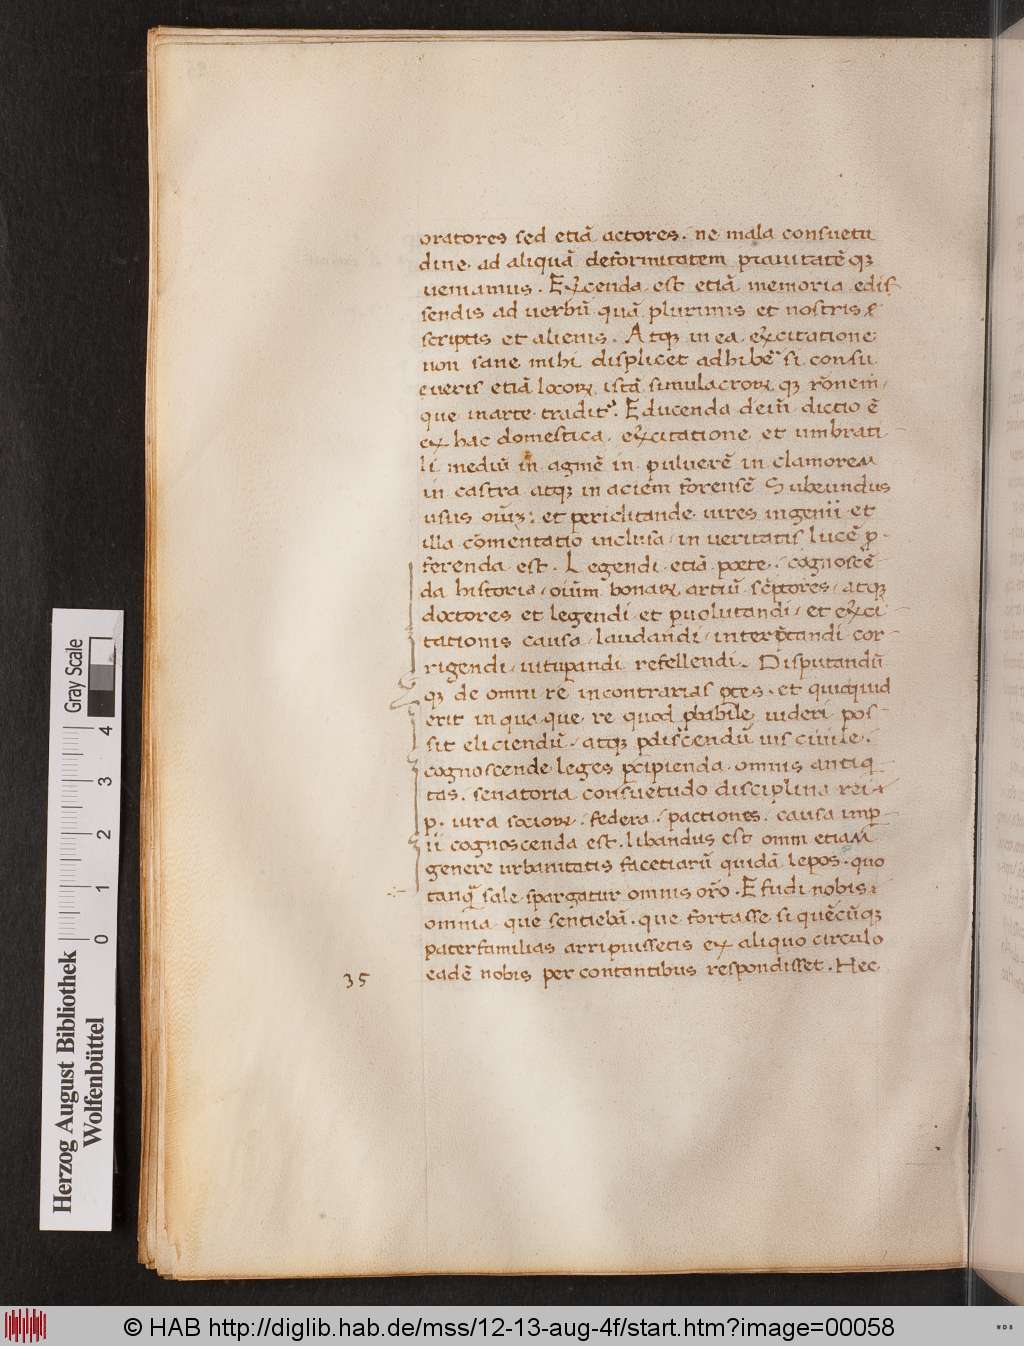 oratores sed etiā actores . ne mala consuetu
dine ad aliquā deformitatem prauitatē qꝫ
ueniamus . Exꝛcenda est etiā memoria edis
sendis ad uerbū quā plurimis et nostris &
scriptis et alienis . Atqꝫ in ea exꝛcitatione
non sane mihi displicet adhibē si consu
eueris etiā locoꝝ istā simulacroꝝ qꝫ rōnem
que in arte tradit᷑ . Educenda dein̄ dictio ē
ex hac domestica exꝛcitatione et umbrati
li mediū in agmē in puluerē in clamorem
in castra atqꝫ in aciem forensē Subeundus
usus oīuꝫ : et periclitande uires ingenii et
illa cōmentatio inclusa / in ueritatis lucē ꝓ
ferenda est . Legendi etiā poete . cognoscē
da historia / oium̄ bonaꝝ artiū scͥptores / atqꝫ
doctores et legendi et ꝑuolutandi / et exꝛci
tationis causa / laudandi / interp̄tandi cor
rigendi / uituꝑandi refellendi . Disputandū
qꝫ de omni re in contrarias ꝑtes . et quicquid
erit in qua que re quod ꝓbabile uideri pos
sit eliciendū . atqꝫ ꝑdiscendū ius ciuile .
cognoscende leges ꝑcipienda omnis antiq
tas . senatoria consuetudo disciplina rei
p . iura socioꝝ . federa . pactiones . causa imp
ii cognoscenda est . libandus est omni etiam
genere urbanitatis facetiarū quidā lepos . quo
tanqͣ̄ sale spargatur omnis oro̅ . Efudi nobis
omnia que sentiebā . que fortasse si quēcūqꝫ
paterfamilias arripuissetis ex aliquo circulo
eadē nobis per contantibus respondisset . Hec
35
Herzog August Bibliothek
Wolfenbüttel
Gray Scale
0 1 2 3 4
© HAB http://diglib.hab.de/mss/12-13-aug-4f/start.htm?image=00058